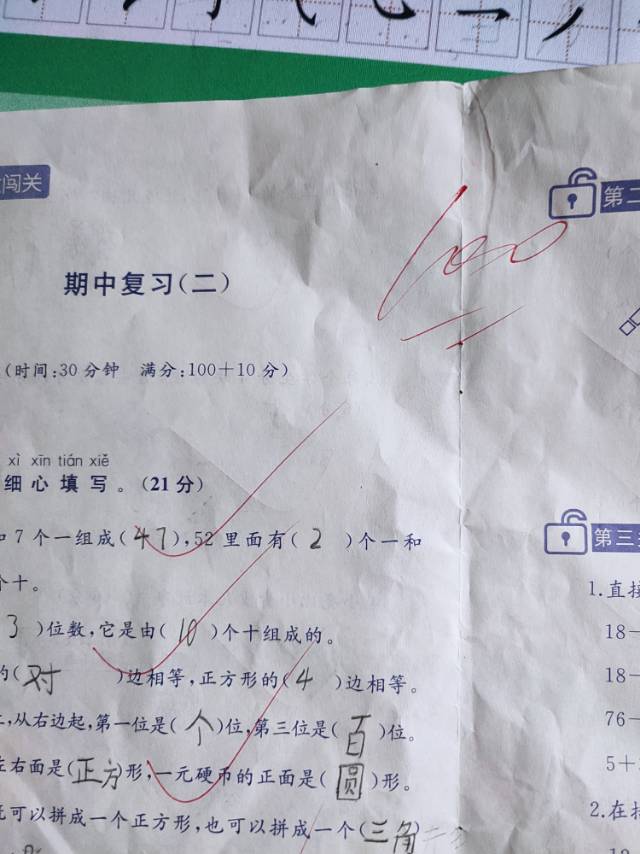 闯关
第二
期中复习(二)
100
(时间:30分钟 满分:100+10分)
xì xīn tián xiě
细心填写。(21分)
7个一组成(47),52里面有(2)个一和
个十。
3)位数,它是由(10)个十组成的。
的(对)边相等,正方形的(4)边相等。
,从右边起,第一位是(个)位,第三位是(百)位。
右面是(正方)形,一元硬币的正面是(圆)形。
可以拼成一个正方形,也可以拼成一个(三角
第三
1.直接
18−
18−
76−
5+
2.在